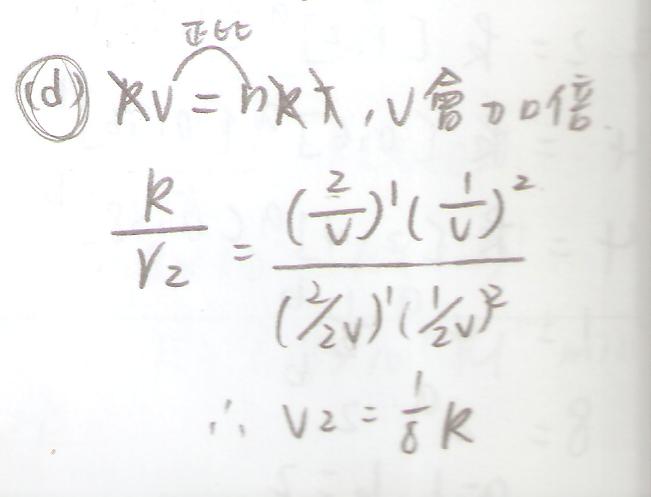 正比
(d) PV = nRT, V會加倍
R/V2 = (2/V)^1 (1/V)^2 / (2/2V)^1 (1/2V)^2
∴ V2 = 1/8 R